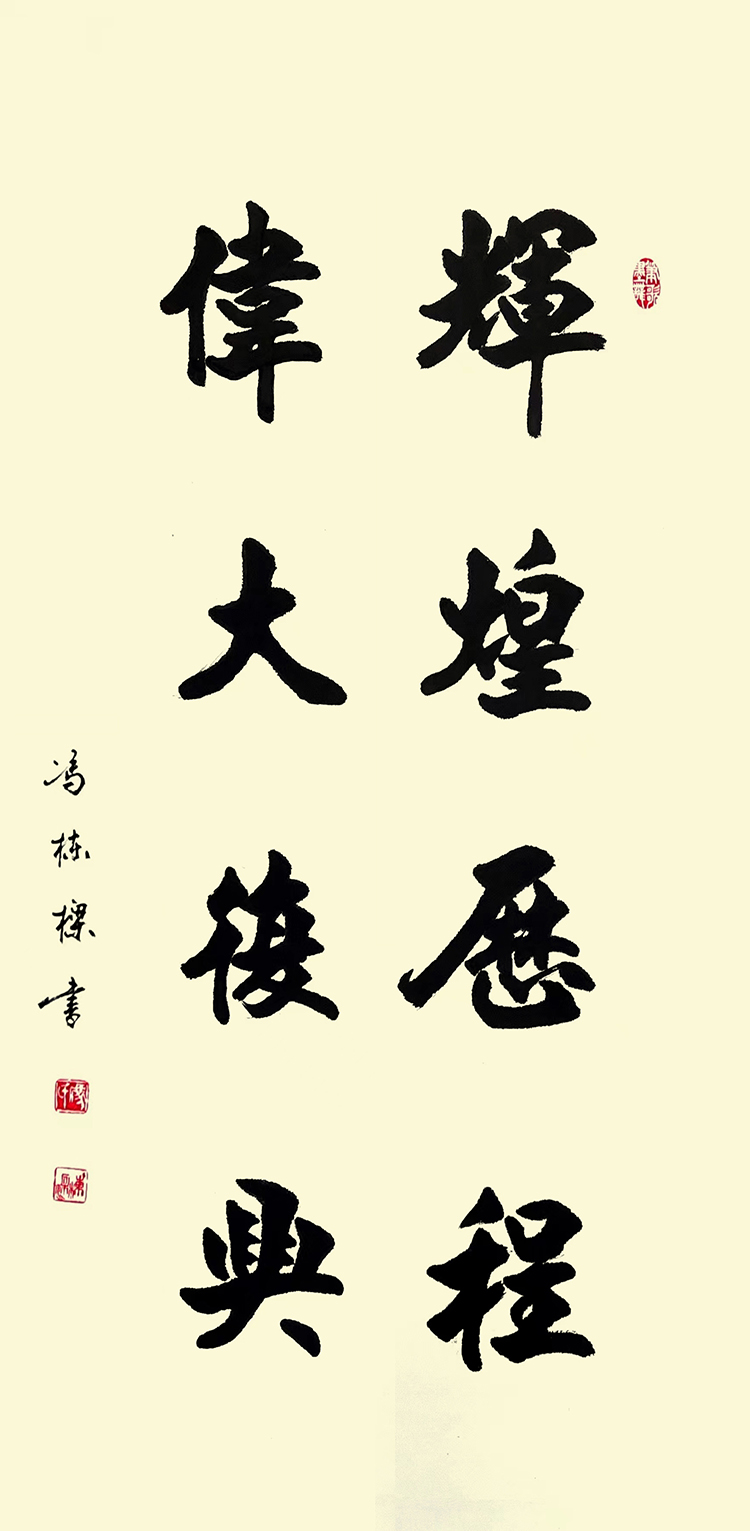 輝煌歷程
偉大復興
冯栋樑書